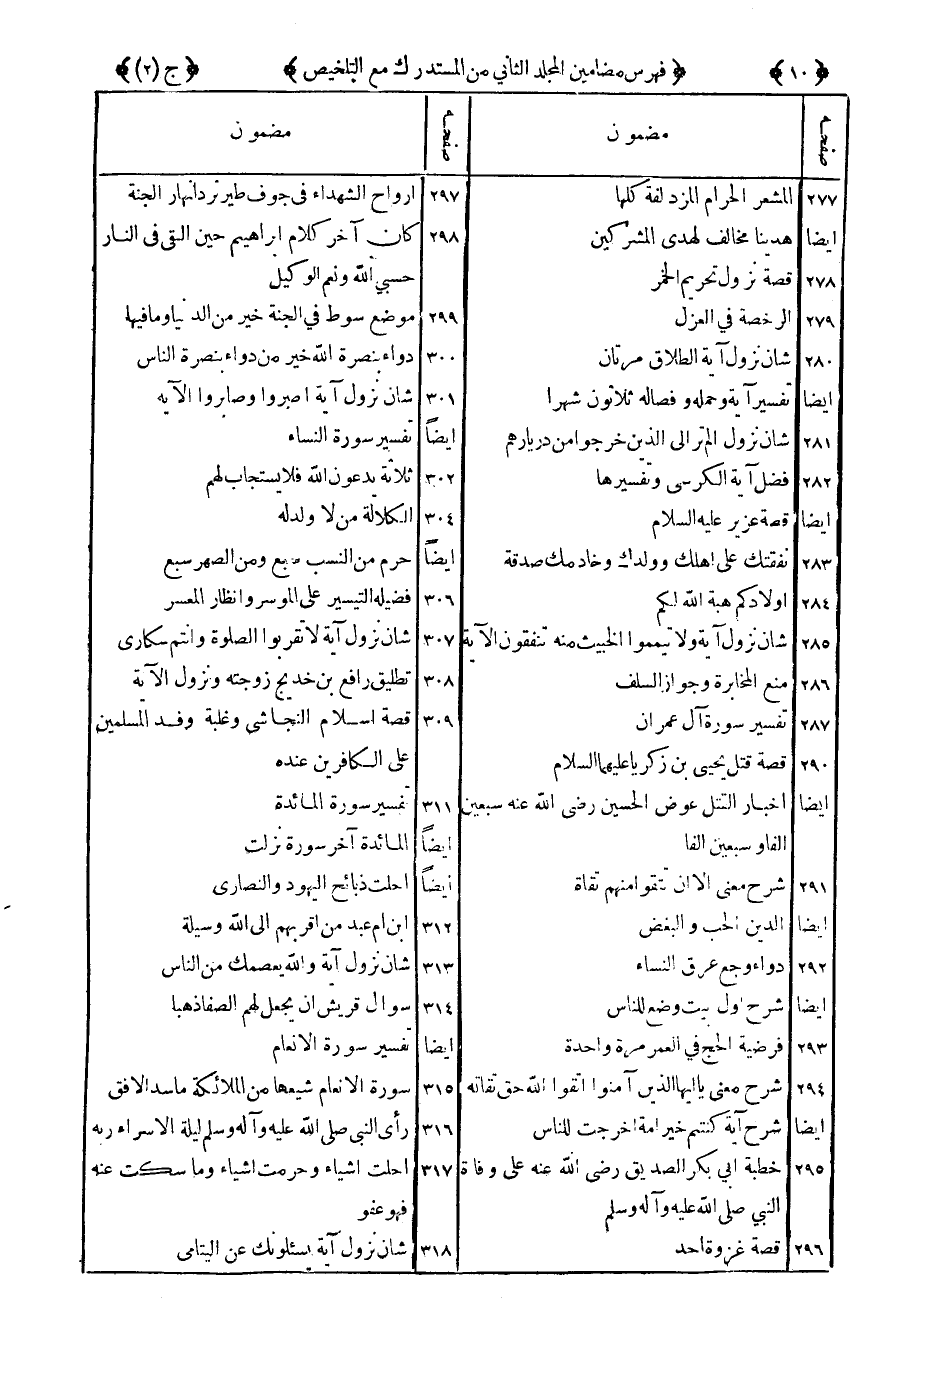 ﴿ ١٠ ﴾ ﴿ فهرس مضامين المجلد الثاني من المستدرك مع التلخيص ﴾ ﴿ ج (٢) ﴾
صفحه مضمون
٢٧٧ المشعر الحرام المزدلفة كلها
ايضا هدينا مخالف لهدى المشركين
٢٧٨ قصة نزول تحريم الخمر
٢٧٩ الرخصة في العزل
٢٨٠ شان نزول آية الطلاق مرتان
ايضا تفسير آية وحمله و فصاله ثلاثون شهرا
٢٨١ شان نزول الم تر الى الذين خرجوا من ديارهم
٢٨٢ فضل آية الكرسى وتفسيرها
ايضا قصة عزير عليه السلام
٢٨٣ نفقتك على اهلك وولدك وخادمك صدقة
٢٨٤ اولادكم هبة الله لكم
٢٨٥ شان نزول آية ولا تيمموا الخبيث منه تنفقون الآية
٢٨٦ منع المخابرة وجواز السلف
٢٨٧ تفسير سورة آل عمران
٢٩٠ قصة قتل يحيى بن زكريا عليهما السلام
ايضا اخبار القتل عوض الحسين رضى الله عنه سبعين
الفا و سبعين الفا
٢٩١ شرح معنى الا ان تتقوا منهم تقاة
ايضا الدين الحب و البغض
٢٩٢ دواء وجع عرق النساء
ايضا شرح اول بيت وضع للناس
٢٩٣ فرضية الحج في العمر مرة واحدة
٢٩٤ شرح معنى يا ايها الذين آمنوا اتقوا الله حق تقاته
ايضا شرح آية كنتم خير امة اخرجت للناس
٢٩٥ خطبة ابي بكر الصديق رضى الله عنه على وفاة
النبي صلى الله عليه وآله وسلم
٢٩٦ قصة غزوة احد
صفحه مضمون
٢٩٧ ارواح الشهداء فى جوف طير ترد انهار الجنة
٢٩٨ كان آخر كلام ابراهيم حين القى فى النار
حسبي الله ونعم الوكيل
٢٩٩ موضع سوط في الجنة خير من الدنيا وما فيها
٣٠٠ دواء بنصرة الله خير من دواء بنصرة الناس
٣٠١ شان نزول آية اصبروا وصابروا الآيه
ايضاً تفسير سورة النساء
٣٠٢ ثلاثة يدعون الله فلا يستجاب لهم
٣٠٤ الكلالة من لا ولد له
ايضاً حرم من النسب سبع ومن الصهر سبع
٣٠٦ فضيله التيسير على الموسر وانظار المعسر
٣٠٧ شان نزول آية لا تقربوا الصلوة وانتم سكارى
٣٠٨ تطليق رافع بن خديج زوجته ونزول الآية
٣٠٩ قصة اسلام النجاشى وغلبة وفد المسلمين
على الكافرين عنده
٣١١ تفسير سورة المائدة
ايضاً المائدة آخر سورة نزلت
ايضاً احلت ذبائح اليهود والنصارى
٣١٢ ابن ام عبد من اقربهم الى الله وسيلة
٣١٣ شان نزول آية والله يعصمك من الناس
٣١٤ سوال قريش ان يجعل لهم الصفا ذهبا
ايضا تفسير سورة الانعام
٣١٥ سورة الانعام شيعها من الملائكة ما سد الافق
٣١٦ رأى النبي صلى الله عليه وآله وسلم ليلة الاسراء ربه
٣١٧ احلت اشياء وحرمت اشياء وما سكت عنه
فهو عفو
٣١٨ شان نزول آية يسئلونك عن اليتامى